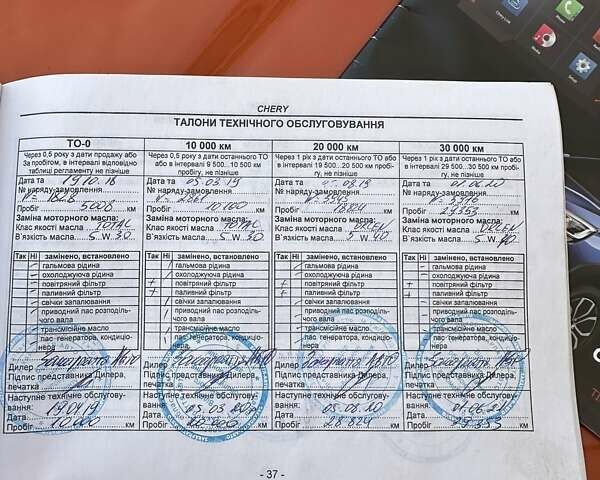 CHERY
ТАЛОНИ ТЕХНІЧНОГО ОБСЛУГОВУВАННЯ
ТО-0
Через 0,5 року з дати продажу або
За пробігом, в інтервалі відповідно
таблиці регламенту не пізніше
Дата та 19.10.18
№ наряду-замовлення
Пробіг 5008 км
Заміна моторного масла:
Клас якості масла TOTAC
В'язкість масла 5 W 30
Так Ні замінено, встановлено
гальмова рідина
охолоджуюча рідина
повітряний фільтр
паливний фільтр
свічки запалювання
приводний пас розподіль-
ного вала
трансмісійне масло
пас генератора, кондиціо-
нера
Дилер
Підпис представника Дилера,
печатка
Наступне технічне обслугову-
вання: 19.04.19
Дата
Пробіг 10 000 км
10 000 км
Через 0,5 року з дати останнього ТО
або в інтервалі 9 500...10 500 км
пробігу, не пізніше
Дата та 05.03.19
№ наряду-замовлення
Пробіг 10 100 км
Заміна моторного масла:
Клас якості масла TOTAC
В'язкість масла 5 W 30
Так Ні замінено, встановлено
гальмова рідина
охолоджуюча рідина
повітряний фільтр
паливний фільтр
свічки запалювання
приводний пас розподіль-
ного вала
трансмісійне масло
пас генератора, кондиціо-
нера
Дилер
Підпис представника Дилера,
печатка
Наступне технічне обслугову-
вання:
05.03
Дата
Пробіг км
20 000 км
Через 1 рік з дати останнього ТО або
в інтервалі 19 500...20 500 км пробі-
гу, не пізніше
Дата та
№ наряду-замовлення
Пробіг км
Заміна моторного масла:
Клас якості масла
В'язкість масла 5 W 40
Так Ні замінено, встановлено
гальмова рідина
охолоджуюча рідина
повітряний фільтр
паливний фільтр
свічки запалювання
приводний пас розподіль-
ного вала
трансмісійне масло
пас генератора, кондиціо-
нера
Дилер
Підпис представника Дилера,
печатка
Наступне технічне обслугову-
вання: 05.08.20
Дата
Пробіг 28 824 км
30 000 км
Через 1 рік з дати останнього ТО або
в інтервалі 29 500...30 500 км пробі-
гу, не пізніше
Дата та 01.06.20
№ наряду-замовлення
Пробіг км
Заміна моторного масла:
Клас якості масла
В'язкість масла 5 W 40
Так Ні замінено, встановлено
гальмова рідина
охолоджуюча рідина
повітряний фільтр
паливний фільтр
свічки запалювання
приводний пас розподіль-
ного вала
трансмісійне масло
пас генератора, кондиціо-
нера
Дилер
Підпис представника Дилера,
печатка
Наступне технічне обслугову-
вання: 01.06.21
Дата
Пробіг км
- 37 -